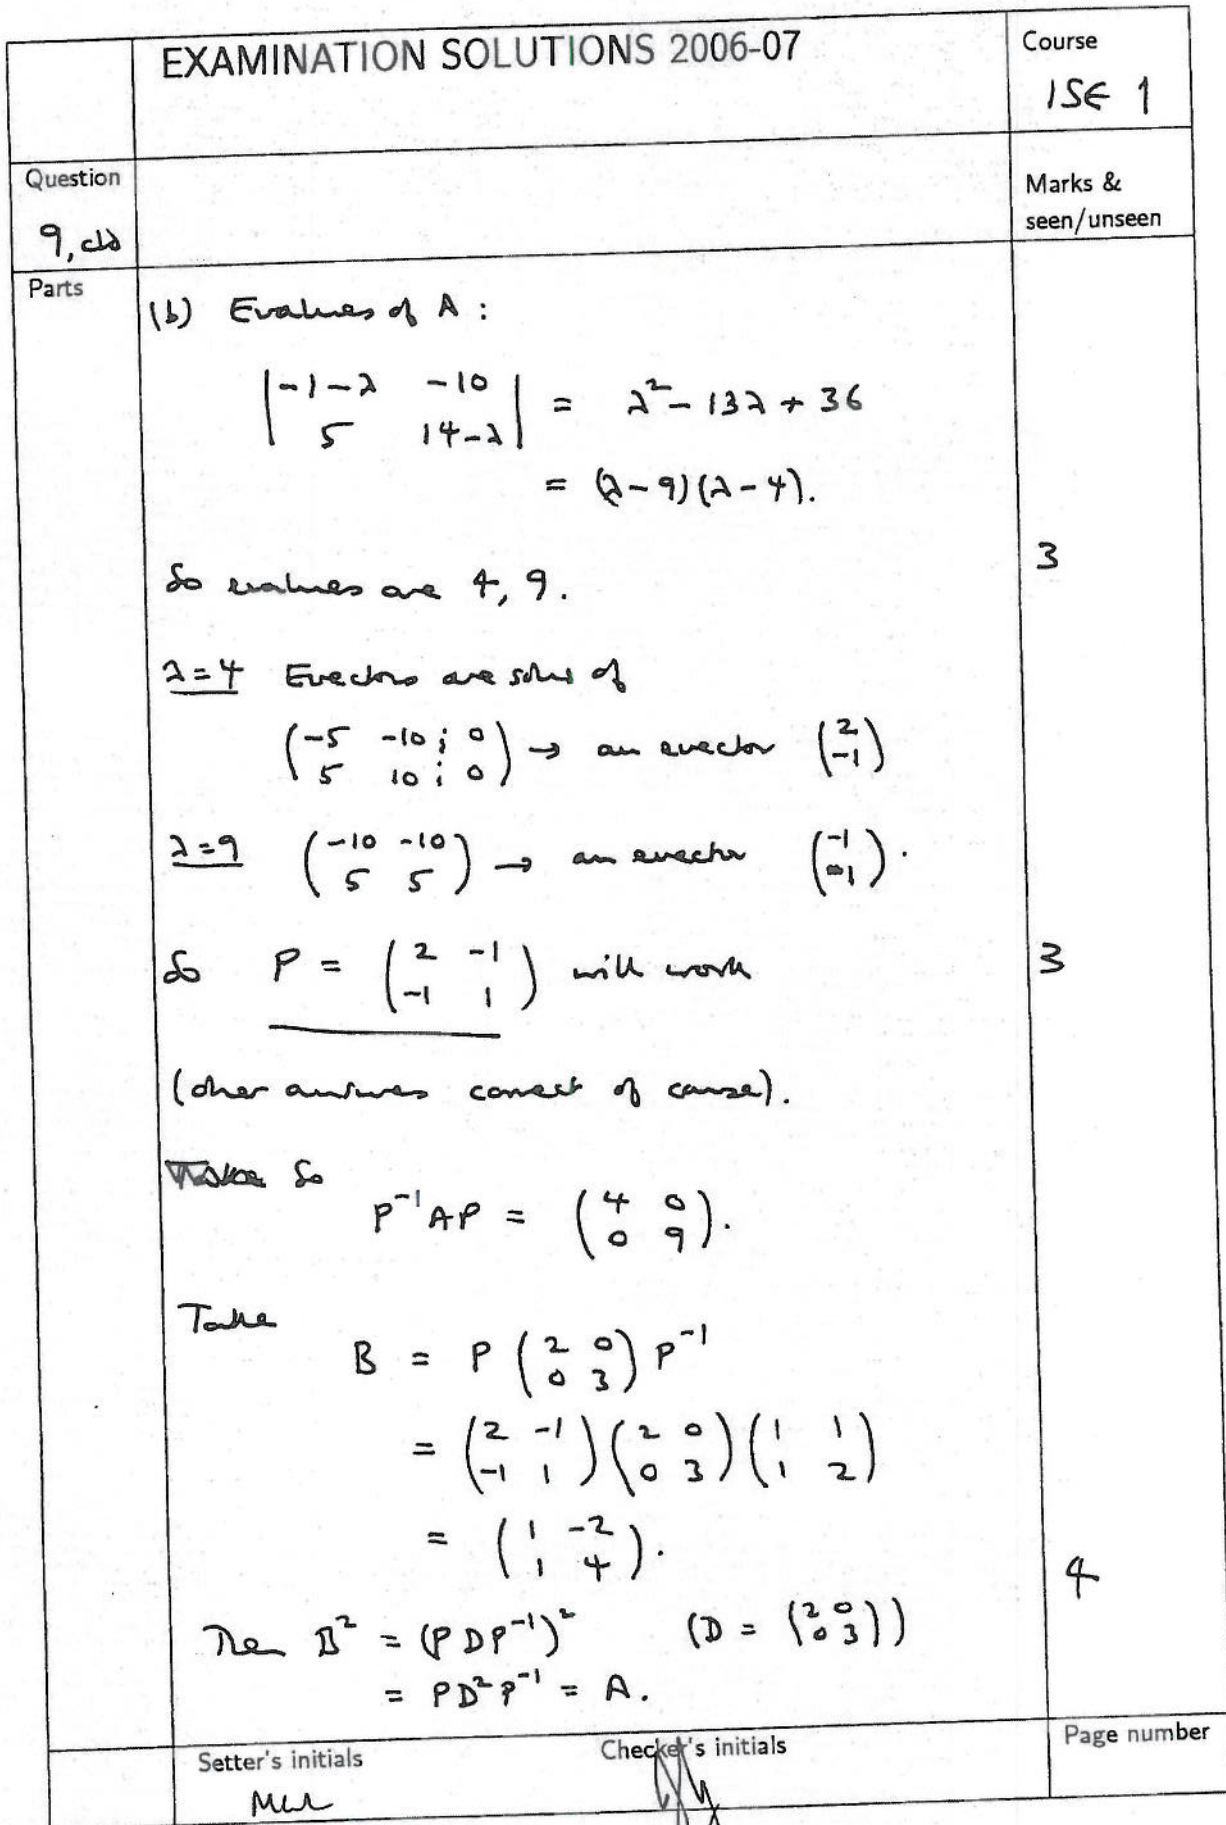 EXAMINATION SOLUTIONS 2006-07
Course
ISE 1
Question
9, ctd
Marks &
seen/unseen
Parts
(b) Evalues of A :
| -1-λ -10 |
| 5 14-λ | = λ² - 13λ + 36
= (λ-9)(λ-4).
So evalues are 4, 9.
3
λ=4 Evectors are solns of
( -5 -10 ; 0 )
( 5 10 ; 0 ) → an evector ( 2 )
( -1 )
λ=9 ( -10 -10 )
( 5 5 ) → an evector ( -1 )
( -1 ) .
So P = ( 2 -1 )
( -1 1 ) will work
3
(other answers correct of course).
So
P⁻¹AP = ( 4 0 )
( 0 9 ) .
Take
B = P ( 2 0 )
( 0 3 ) P⁻¹
= ( 2 -1 ) ( 2 0 ) ( 1 1 )
( -1 1 ) ( 0 3 ) ( 1 2 )
= ( 1 -2 )
( 1 4 ) .
4
Then B² = (PDP⁻¹)² (D = ( 2 0 )
( 0 3 ))
= PD²P⁻¹ = A.
Setter's initials
Checker's initials
Page number